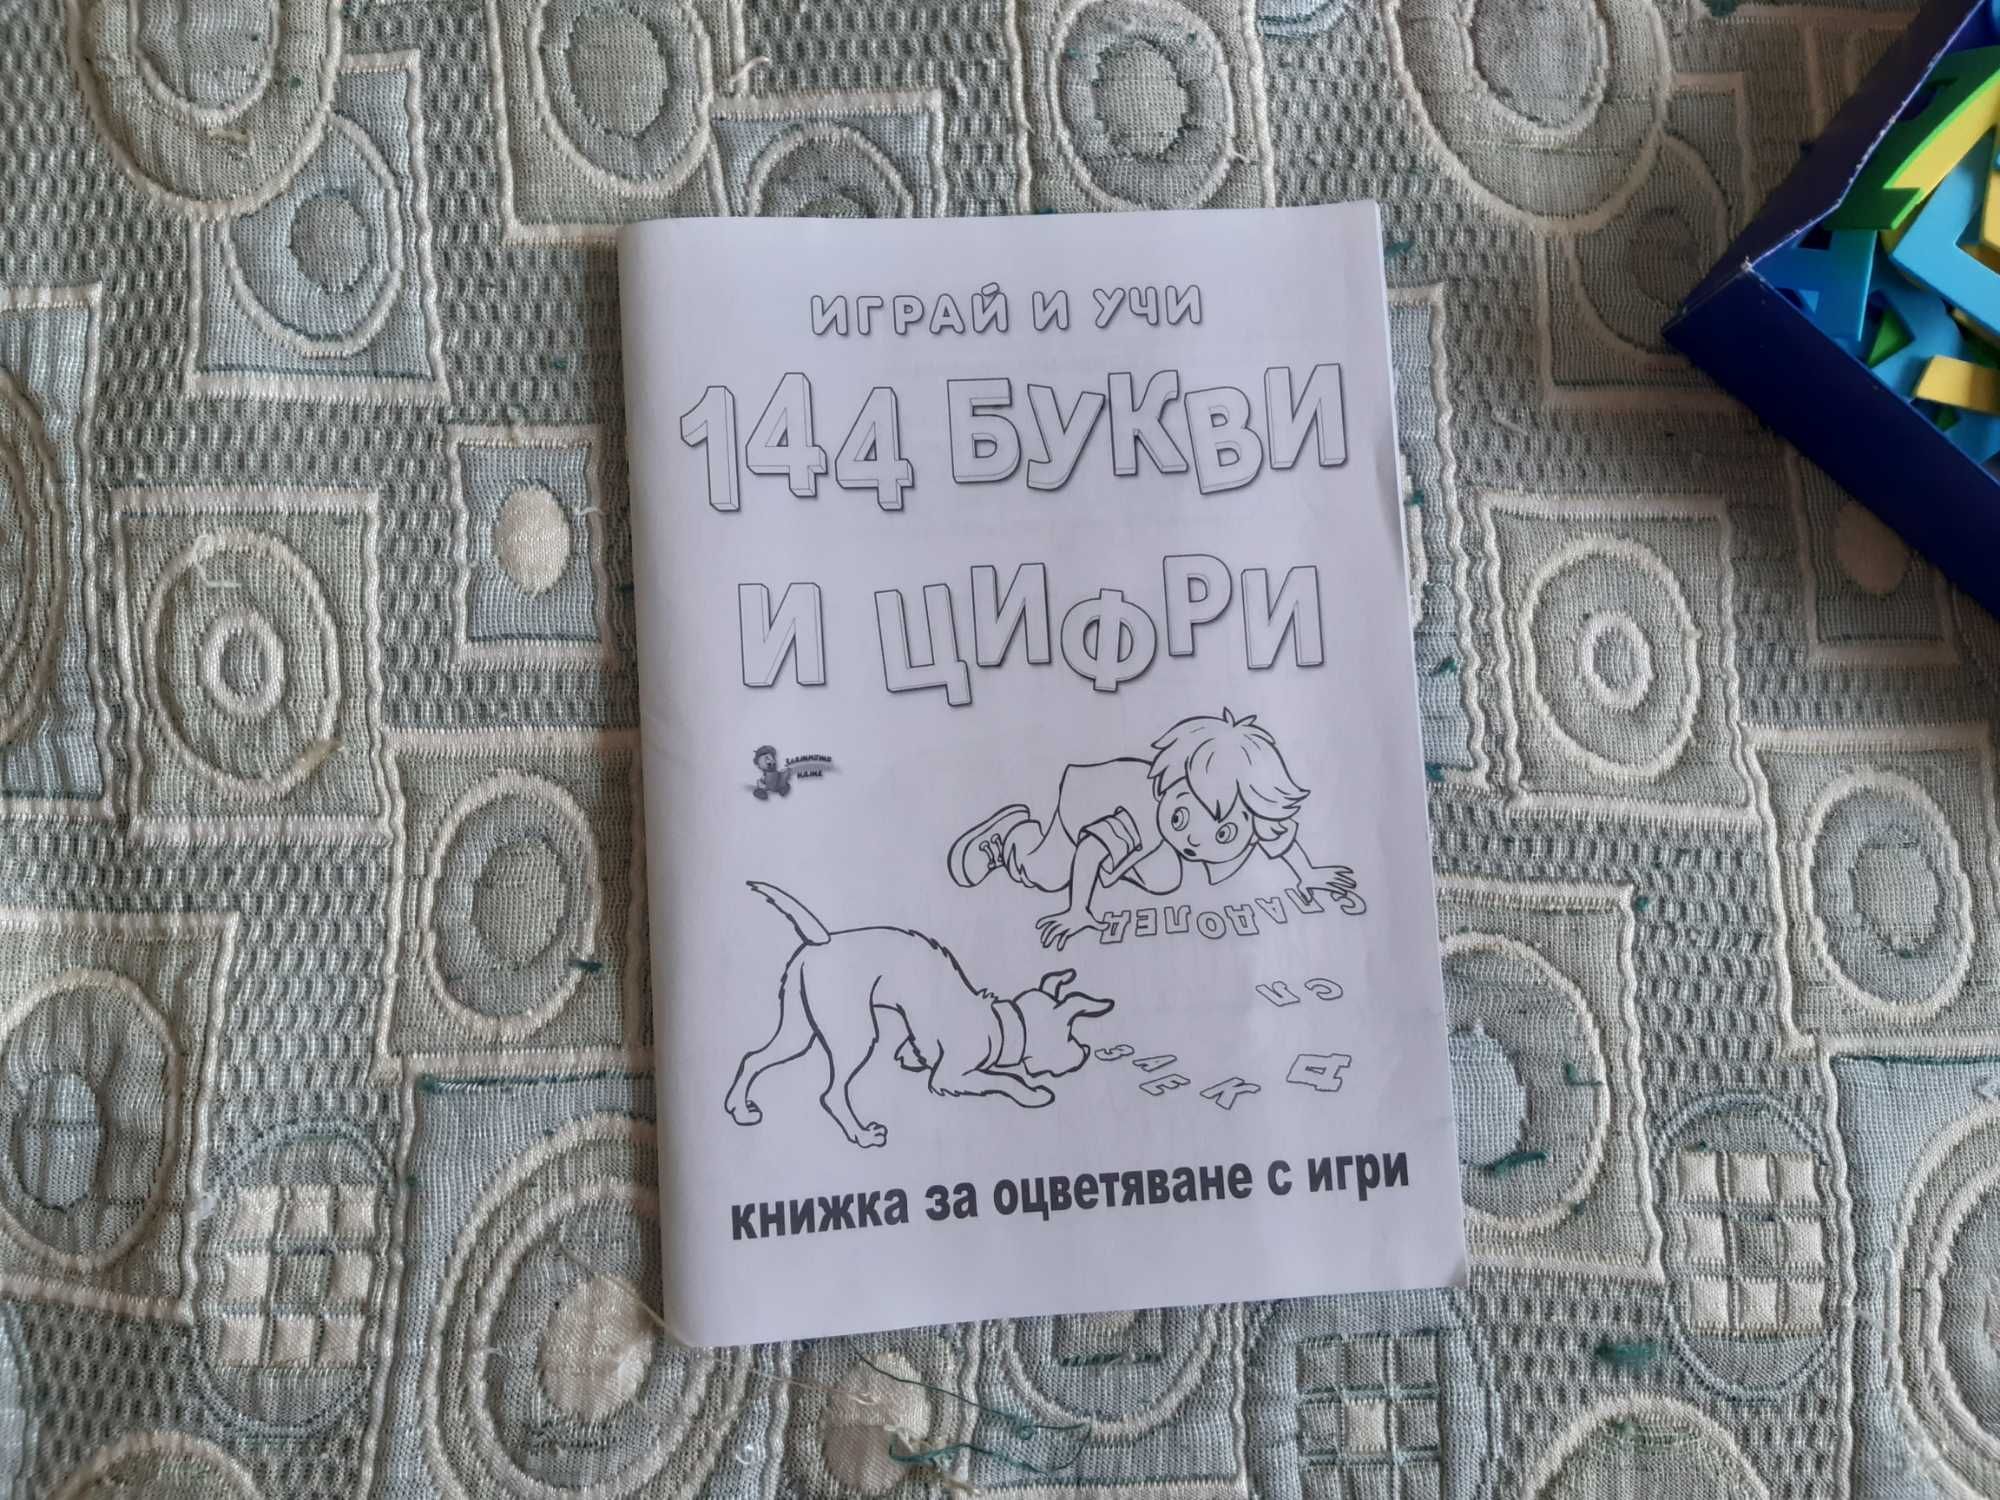 ИГРАЙ И УЧИ
144 БУКВИ
И ЦИФРИ
Златното
пате
СЛАДОЛЕД
СЛ
ЗАЕК Д
книжка за оцветяване с игри